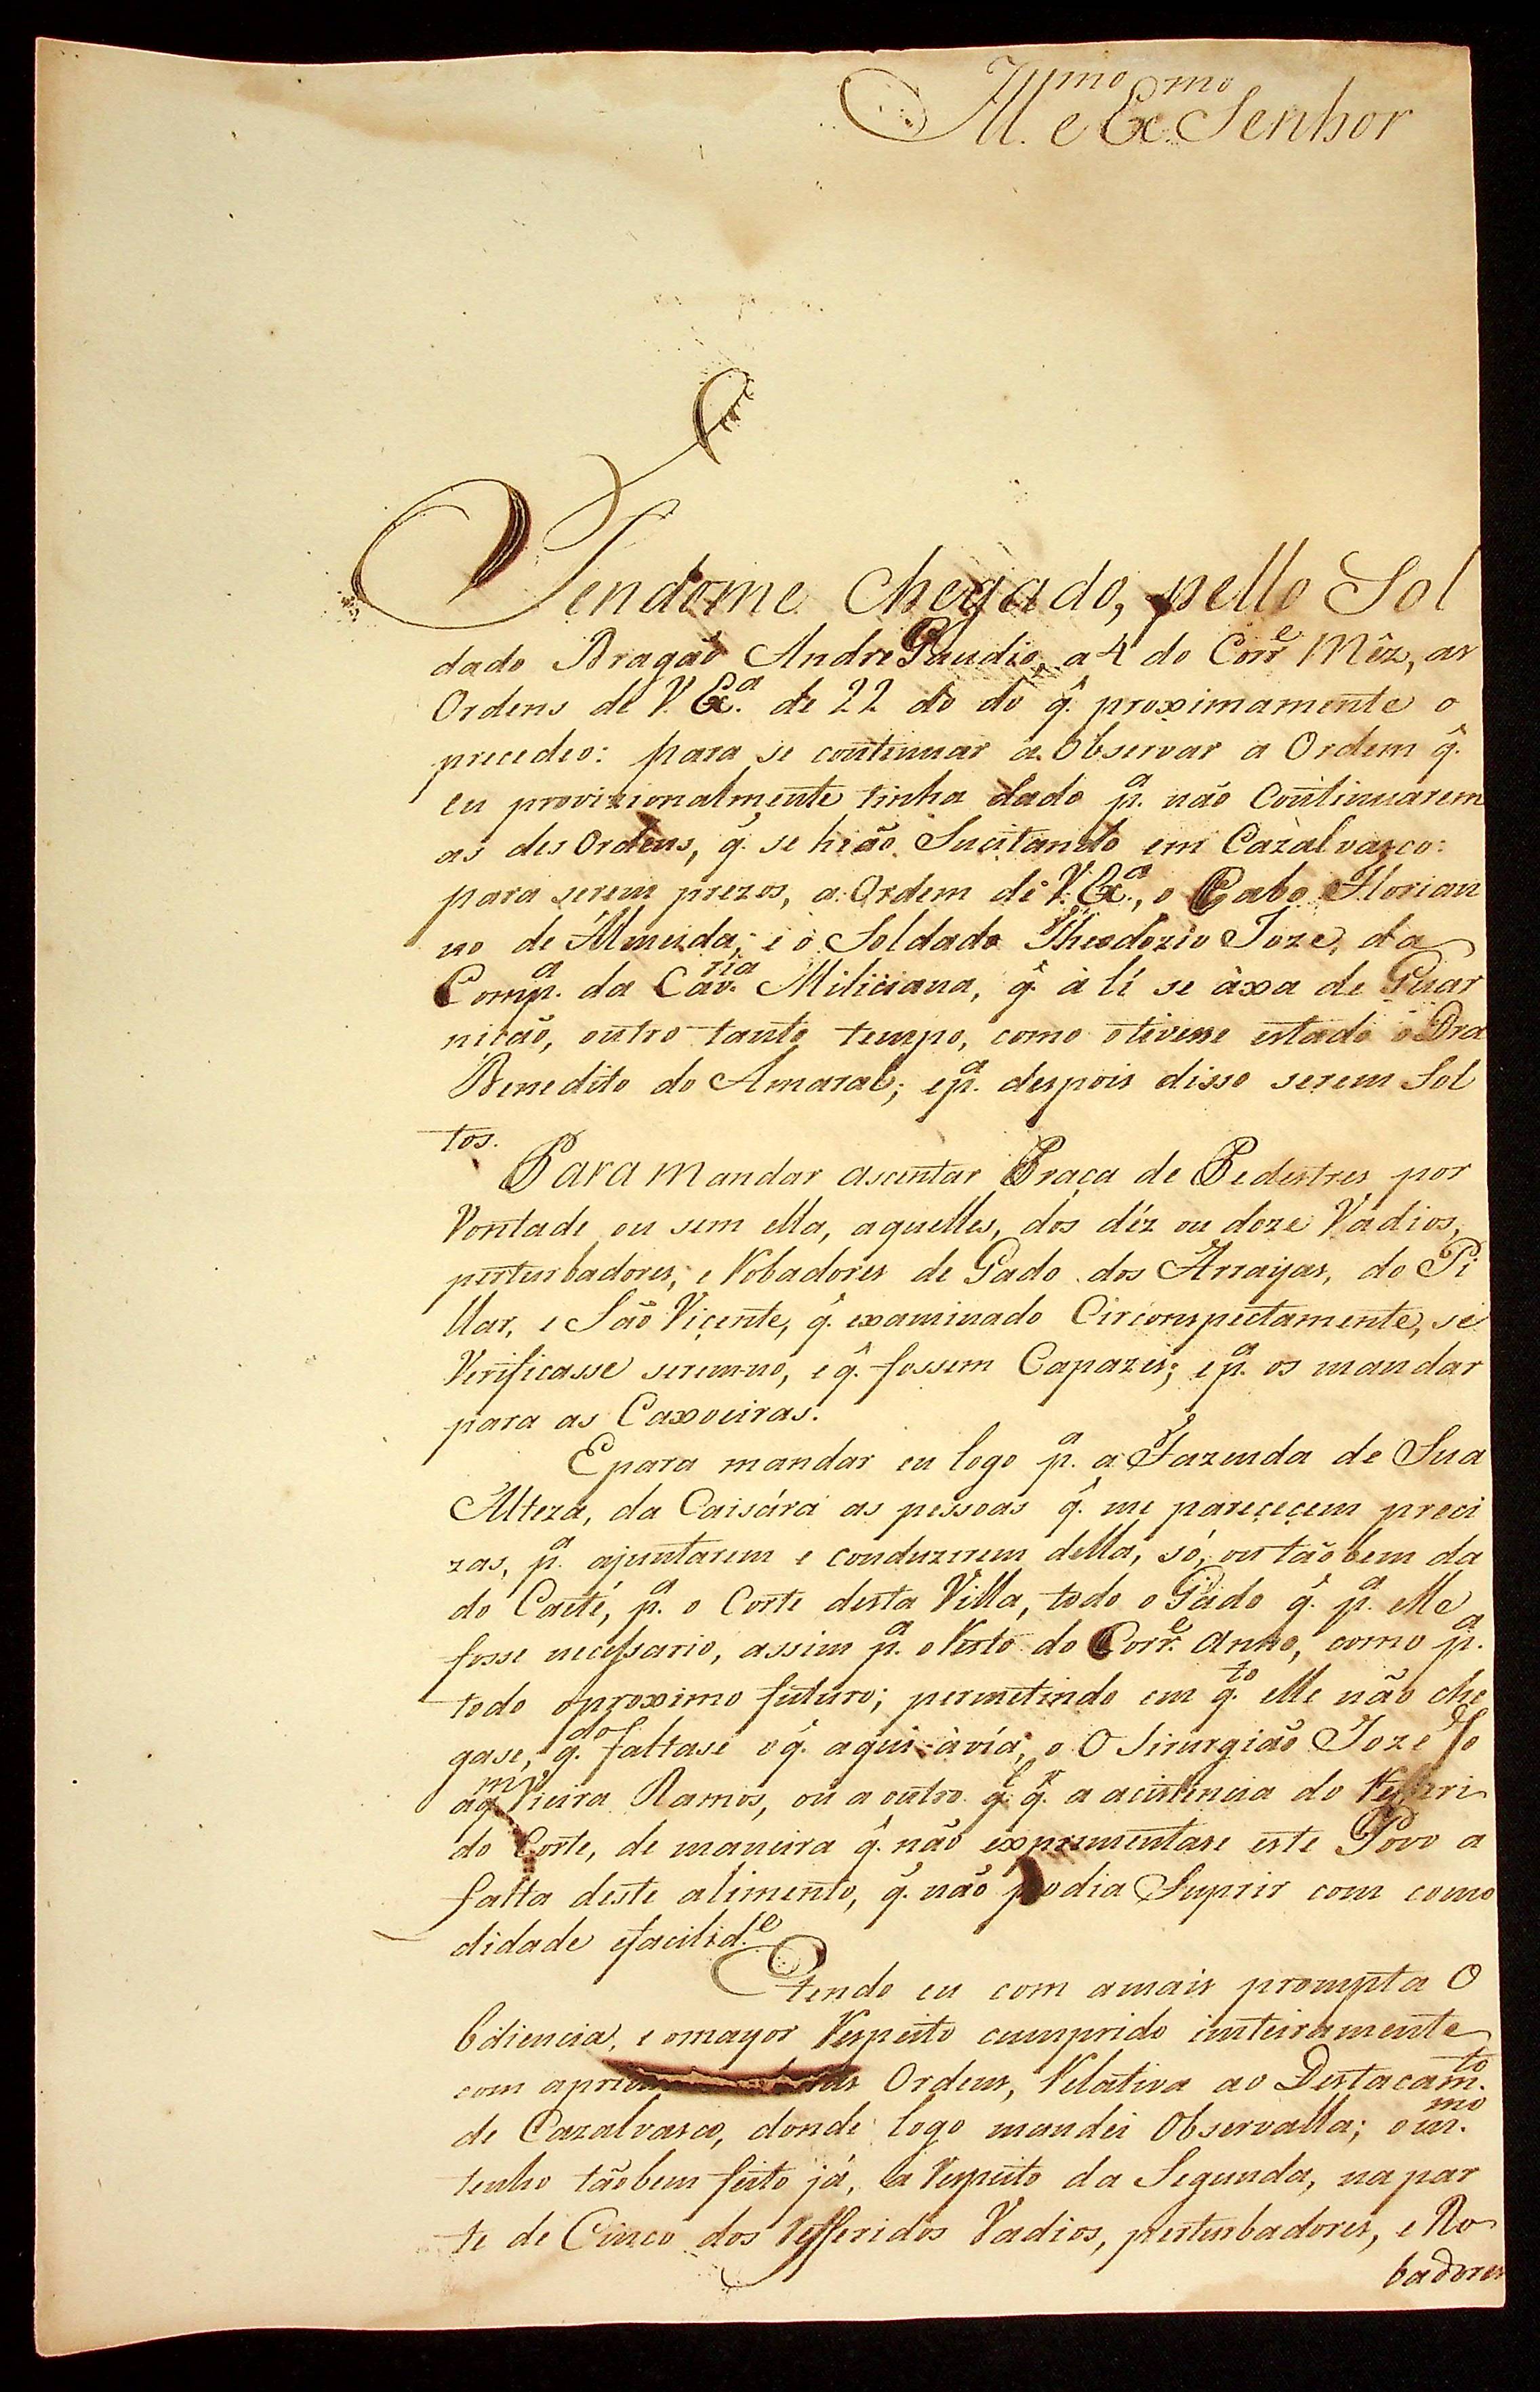 Ill.mo e Ex.mo Senhor
Tendome chegado, pello Sol
dado Dragão Andre Gaudio, a 4 do Corr.e Mêz, as
Ordens de V. Ex.a de 22 do do q̂. proximamente o
precedeo: para se continuar a Observar a Ordem q̂.
eu provizionalmente tinha dado p.a não Continuarem
as des Ordens, q̂. se hião Sucitando em Cazalvasco:
para serem prezos, a Ordem de V. Ex.a, o Cabo Florian
no de Almeida, e o Soldado Theodozio Joze, da
Comp.a da Cav.ria Miliciana, q̂. à lí se àxa de Guar
nicão, outro tanto tempo, como otivesse estado o Dra
Benedito do Amaral; ep.a despois disso serem Sol
tos.
Para Mandar ascentar Praça de Pedestres por
Vontade ou sem ella, aquelles, dos déz ou doze Vadios,
perturbadores, e Robadores de Gado dos Arrayas, do Pi
llar, e São Viçente, q̂. examinado Circonspectamente, se
Verificasse serem-no, e q̂. fossem Capazes; e p.a os mandar
para as Caxoeiras.
E para mandar eu logo p.a a Fazenda de Sua
Alteza, da Caisára as pessoas q̂. me pareçeçem preci
zas, p.a ajuntarem e conduzirem della, só, ou tãobem da
do Caeté, p.a o Corte desta Villa, todo o Gado q̂. p.a elle
fosse necessario, assim p.a o Resto do Corr.e Anno, como p.a
todo oproximo futuro; permetindo em q.to elle não che
gase, q.do faltase o q̂. aqui àvía, o O Sirurgião Joze Jo
aq.m Vieira Ramos, ou a outro q.l q̂.r a acistencia do Refferi
do Corte, de maneira q̂. não exprimentase este Povo a
falta deste alimento, q̂. não podia Suprir com como
didade efacilid.e
E tendo eu com amais prompta O
bdiencia, e omayor Respeito cumprido inteiramente
com Ordens, Relativa ao Destacam.to
de Cazalvasco, donde logo mandei Observalla; o m.mo
tenho tãobem feito já, a Respeito da Segunda, na par
te de Cinco dos Refferidos Vadios, perturbadores, e Ro
badores